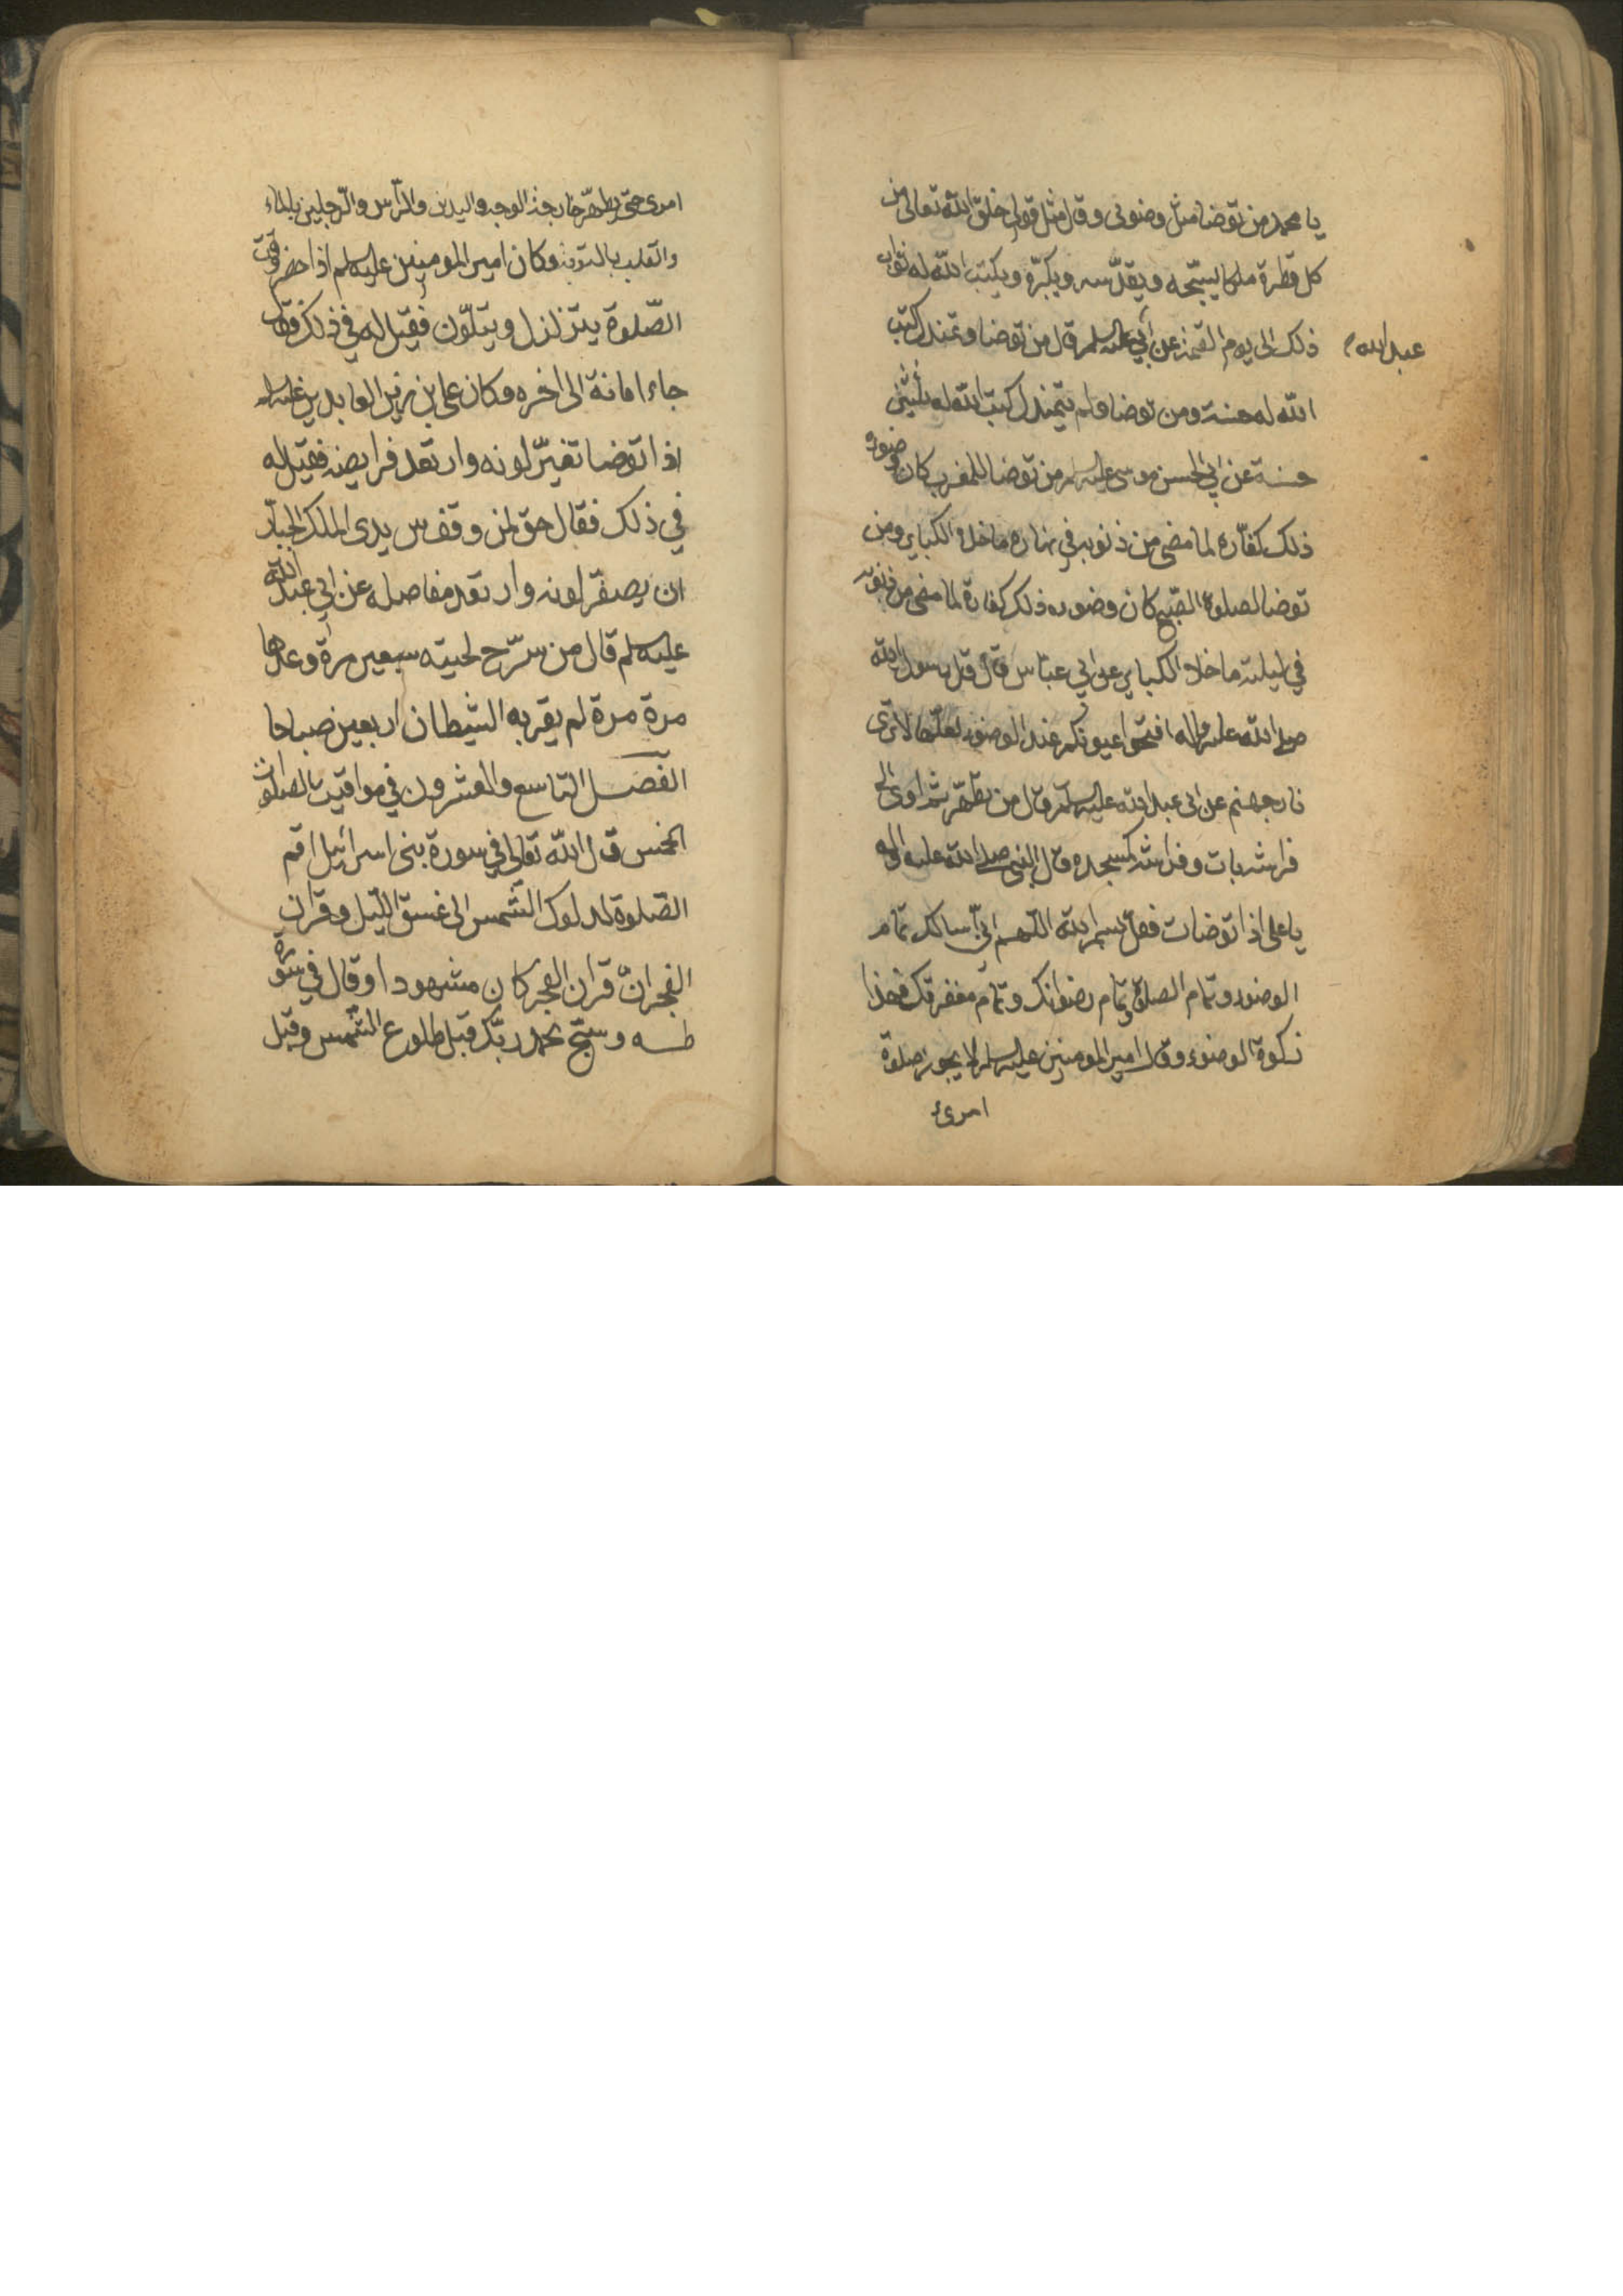 يا محمد من توضا مثل وضوئى وقال مثل قولى خلق الله تعالى من
كل قطرة ملكا يسبّحه ويقدّسه ويكبّره ويكتب الله له ثواب
ذلك الى يوم القيمة عن ابي عليه السلم قال من توضا وتمندل كتب
عبد الله
الله له حسنة ومن توضا ولم يتمندل كتب الله له ثلثين
حسنة عن ابي الحسن موسى عليه السلم من توضا للمغرب كان وضوءه
ذلك كفّارة لما مضى من ذنوبه في نهاره ما خلا الكباير ومن
توضا لصلوة الصّبح كان وضوءه ذلك كفارة لما مضى من ذنوبه
في ليلته ما خلا الكباير عن ابي عبّاس قال قال رسول الله
صلى الله عليه واله افتحوا عيونكم عند الوضوء لعلّها لا ترى
نار جهنم عن ابى عبد الله عليه السلم قال من تطهّر ثم اوى الى
فراشه بات وفراشه كمسجده وقال النبى صلى الله عليه واله
يا على اذا توضات فقل بسم الله اللهم انّي أسالك تمام
الوضوء وتمام الصلوة وتمام رضوانك وتمام مغفرتك فهذا
زكوة الوضوء وقال امير المومنين عليه السلم لا يجوز صلوة
امرئ
امرى حتى يطهّر خمس جوارح الوجه واليدين والرّأس والرّجلين بالماء
والقلب بالتوبة وكان امير المومنين عليه السلم اذا حضر وقت
الصّلوة يتزلزل ويتلوّن فقيل له في ذلك فقال
جاء امانة الى اخره وكان على بن زين العابدين عليه السلم
اذا توضا تغيّر لونه وارتعد فرايصه فقيل له
في ذلك فقال حق لمن وقف بين يدى الملك الجبّار
ان يصفرّ لونه وارتعد مفاصله عن ابي عبد الله
عليه السلم قال من سرّح لحيته سبعين مرة وعدها
مرة مرة لم يقربه الشيطان اربعين صباحا
الفصل التاسع والعشرون في مواقيت الصلوات
الخمس قال الله تعالى في سورة بنى اسرائيل اقم
الصّلوة لدلوك الشّمس الى غسق اللّيل وقران
الفجر انّ قران الفجر كان مشهودا وقال في سورة
طه وسبّح بحمد ربّك قبل طلوع الشّمس وقبل